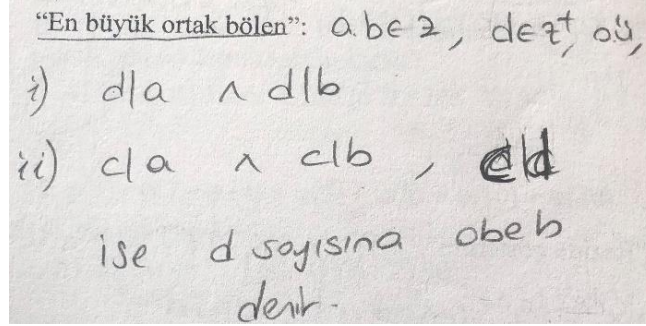 “En büyük ortak bölen”: a.b∈Z, d∈Z⁺, o.ü,
i) d|a ∧ d|b
ii) c|a ∧ c|b, c|d
ise d sayısına obeb
denir.